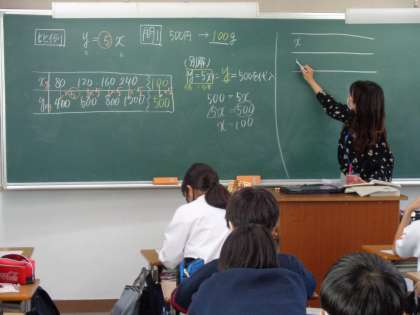 比例 y = 5x
問1 500円 → 100g
x 80 120 160 240 100
y 400 600 800 1200 500
(別解)
y = 5x に y = 500を代入
500 = 5x
5x = 500
x = 100
x